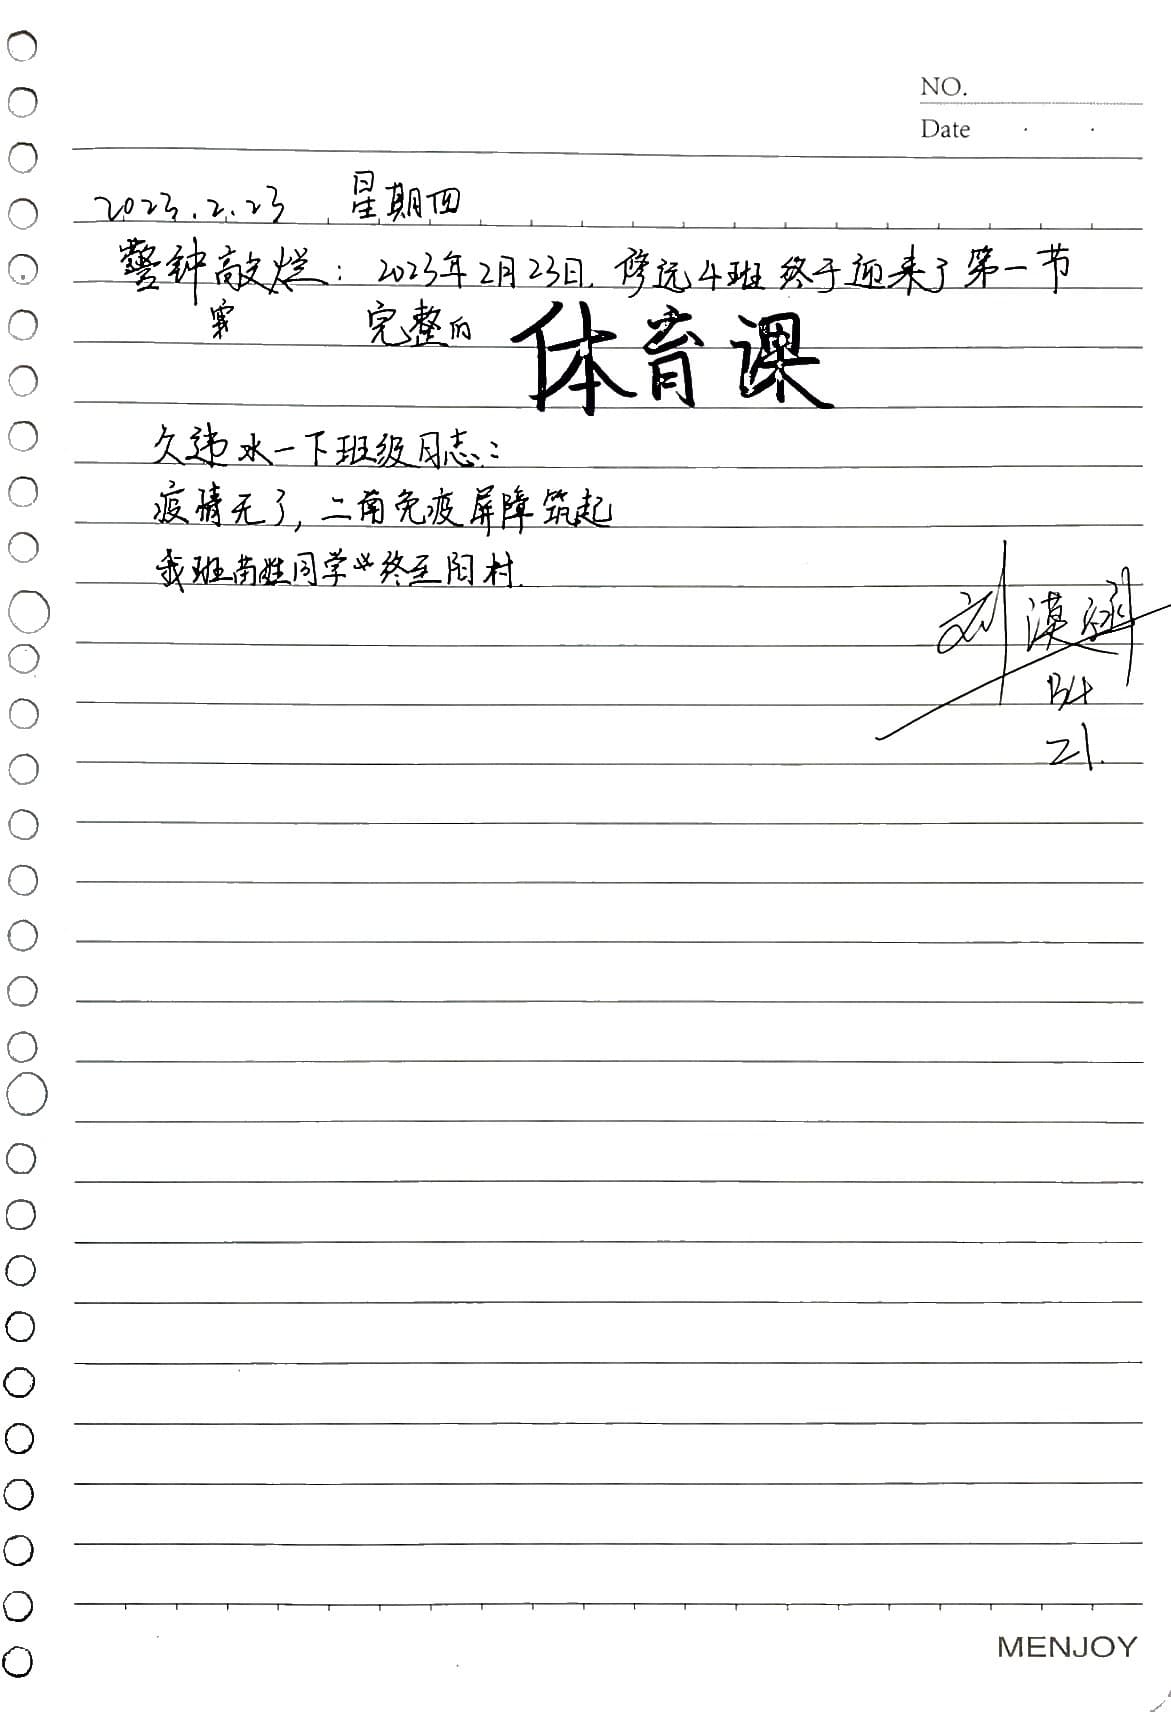 NO.
Date
2023.2.23 星期四
警钟敲烂：2023年2月23日，修远4班终于迎来了第一节
完整的 体育课
久违水一下班级日志：
疫情无了，二南免疫屏障筑起
我班苗姓同学业终至阳村.
刘漠
B4
21.
MENJOY